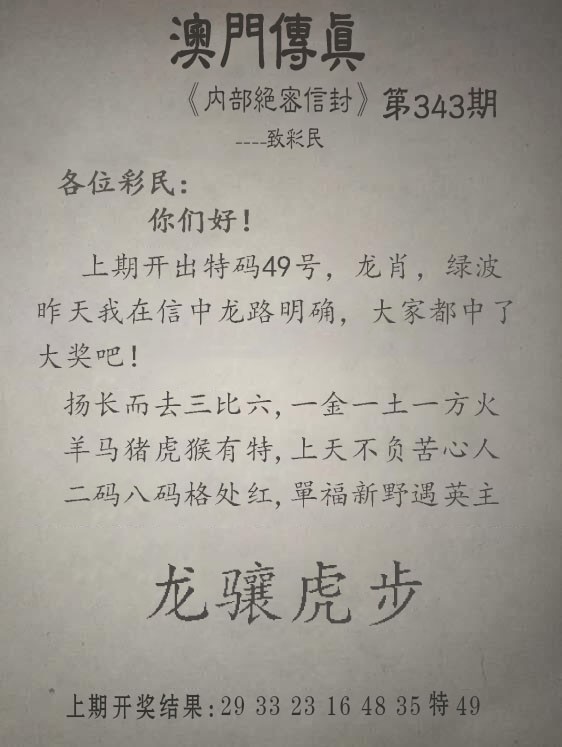 澳門傳真
《内部絕密信封》第343期
----致彩民
各位彩民:
你们好!
上期开出特码49号,龙肖,绿波
昨天我在信中龙路明确,大家都中了
大奖吧!
扬长而去三比六,一金一土一方火
羊马猪虎猴有特,上天不负苦心人
二码八码格处红,單福新野遇英主
龙骧虎步
上期开奖结果:29 33 23 16 48 35 特 49